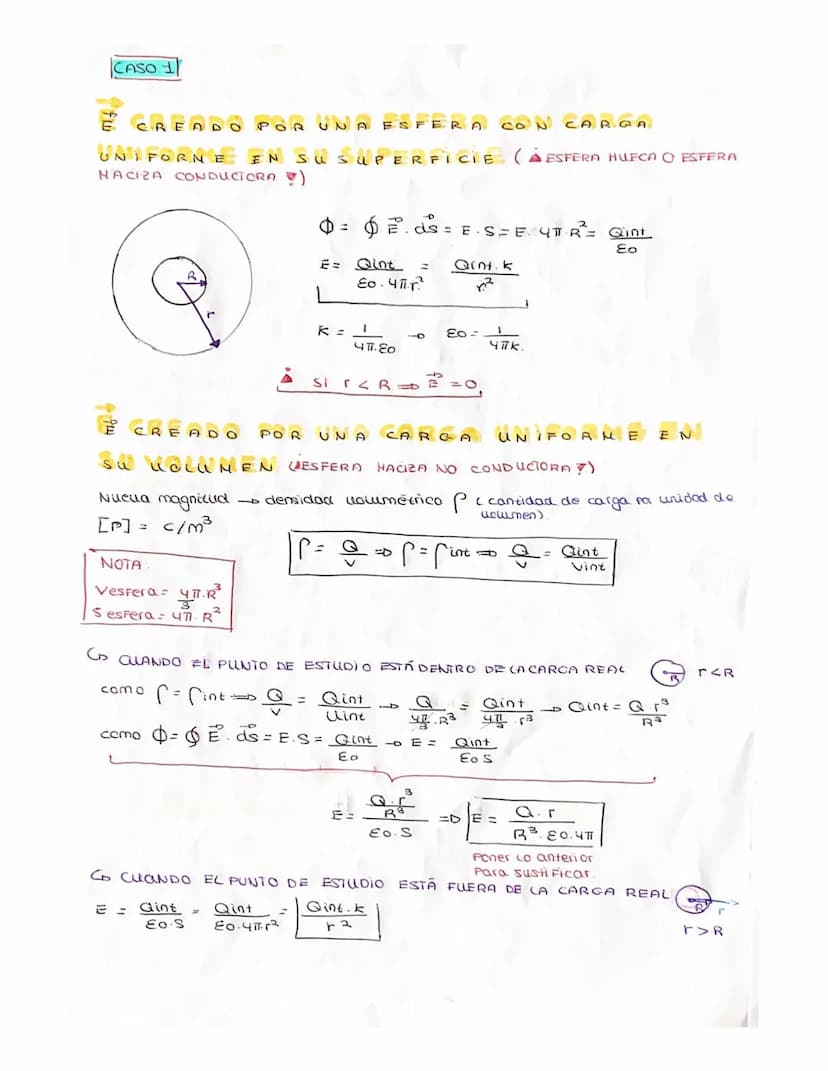 CASO 1
E⃗ CREADO POR UNA ESFERA CON CARGA
UNIFORME EN SU SUPERFICIE (¡ESFERA HUECA O ESFERA
MACIZA CONDUCTORA!)
R
r
Φ = ∮ E⃗. ds⃗ = E.S = E. 4π.R² = Qint/ε0
E = Qint/ε0.4π.r² = Qint.k/r²
K = 1/4π.ε0 → ε0 = 1/4πk.
¡ si r < R ⇒ E⃗ = 0,
E⃗ CREADO POR UNA CARGA UNIFORME EN
SU VOLUMEN (¡ESFERA MACIZA NO CONDUCTORA!)
Nueva magnitud → densidad volumétrico ρ (cantidad de carga por unidad de
volumen).
[ρ] = c/m³
ρ = Q/V ⇒ ρ = ρint ⇒ Q/V = Qint/Vint
NOTA.
Vesfera = 4π.R³/3
Sesfera = 4π.R²
↳ CUANDO EL PUNTO DE ESTUDIO ESTÁ DENTRO DE LA CARGA REAL R r<R
como ρ = ρint ⇒ Q/V = Qint/Vint → Q/(4π/3.R³) = Qint/(4π/3.r³) → Qint = Q.r³/R³
como Φ = ∮ E⃗. ds⃗ = E.S = Qint/ε0 → E = Qint/ε0 S
E = (Q.r³/R³)/ε0.S ⇒ E = Q.r/R³.ε0.4π
Poner lo anterior
para sustificar.
↳ CUANDO EL PUNTO DE ESTUDIO ESTÁ FUERA DE LA CARGA REAL R r
E = Qint/ε0.S = Qint/ε0.4π.r² = Qint.k/r²
r>R